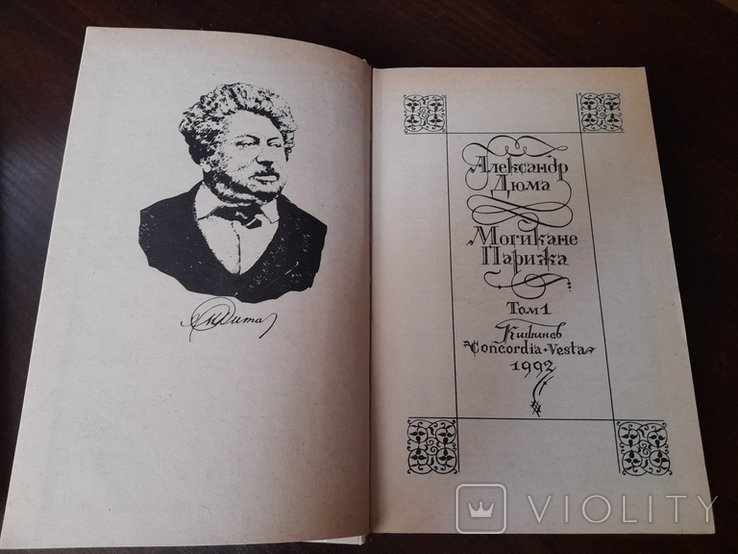 Александр
Дюма
Могикане
Парижа
Том 1
Кишинев
Concordia-Vesta
1992
VIOLITY